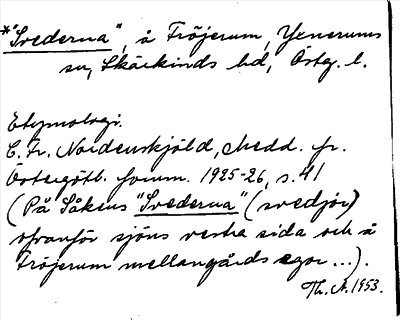 *"Svederna", å Fröjerum, Yxnerums
sn, Skärkinds hd, Östg. l.
Etymologi.
C. Fr. Nordenskjöld, Medd. fr.
Östergötl. fornm. 1925-26, s. 41
(På Såkens "Svederna" (svedjor)
ofvanför sjöns vestra sida och å
Fröjerum mellangårds egor ...).
Th. A. 1953.